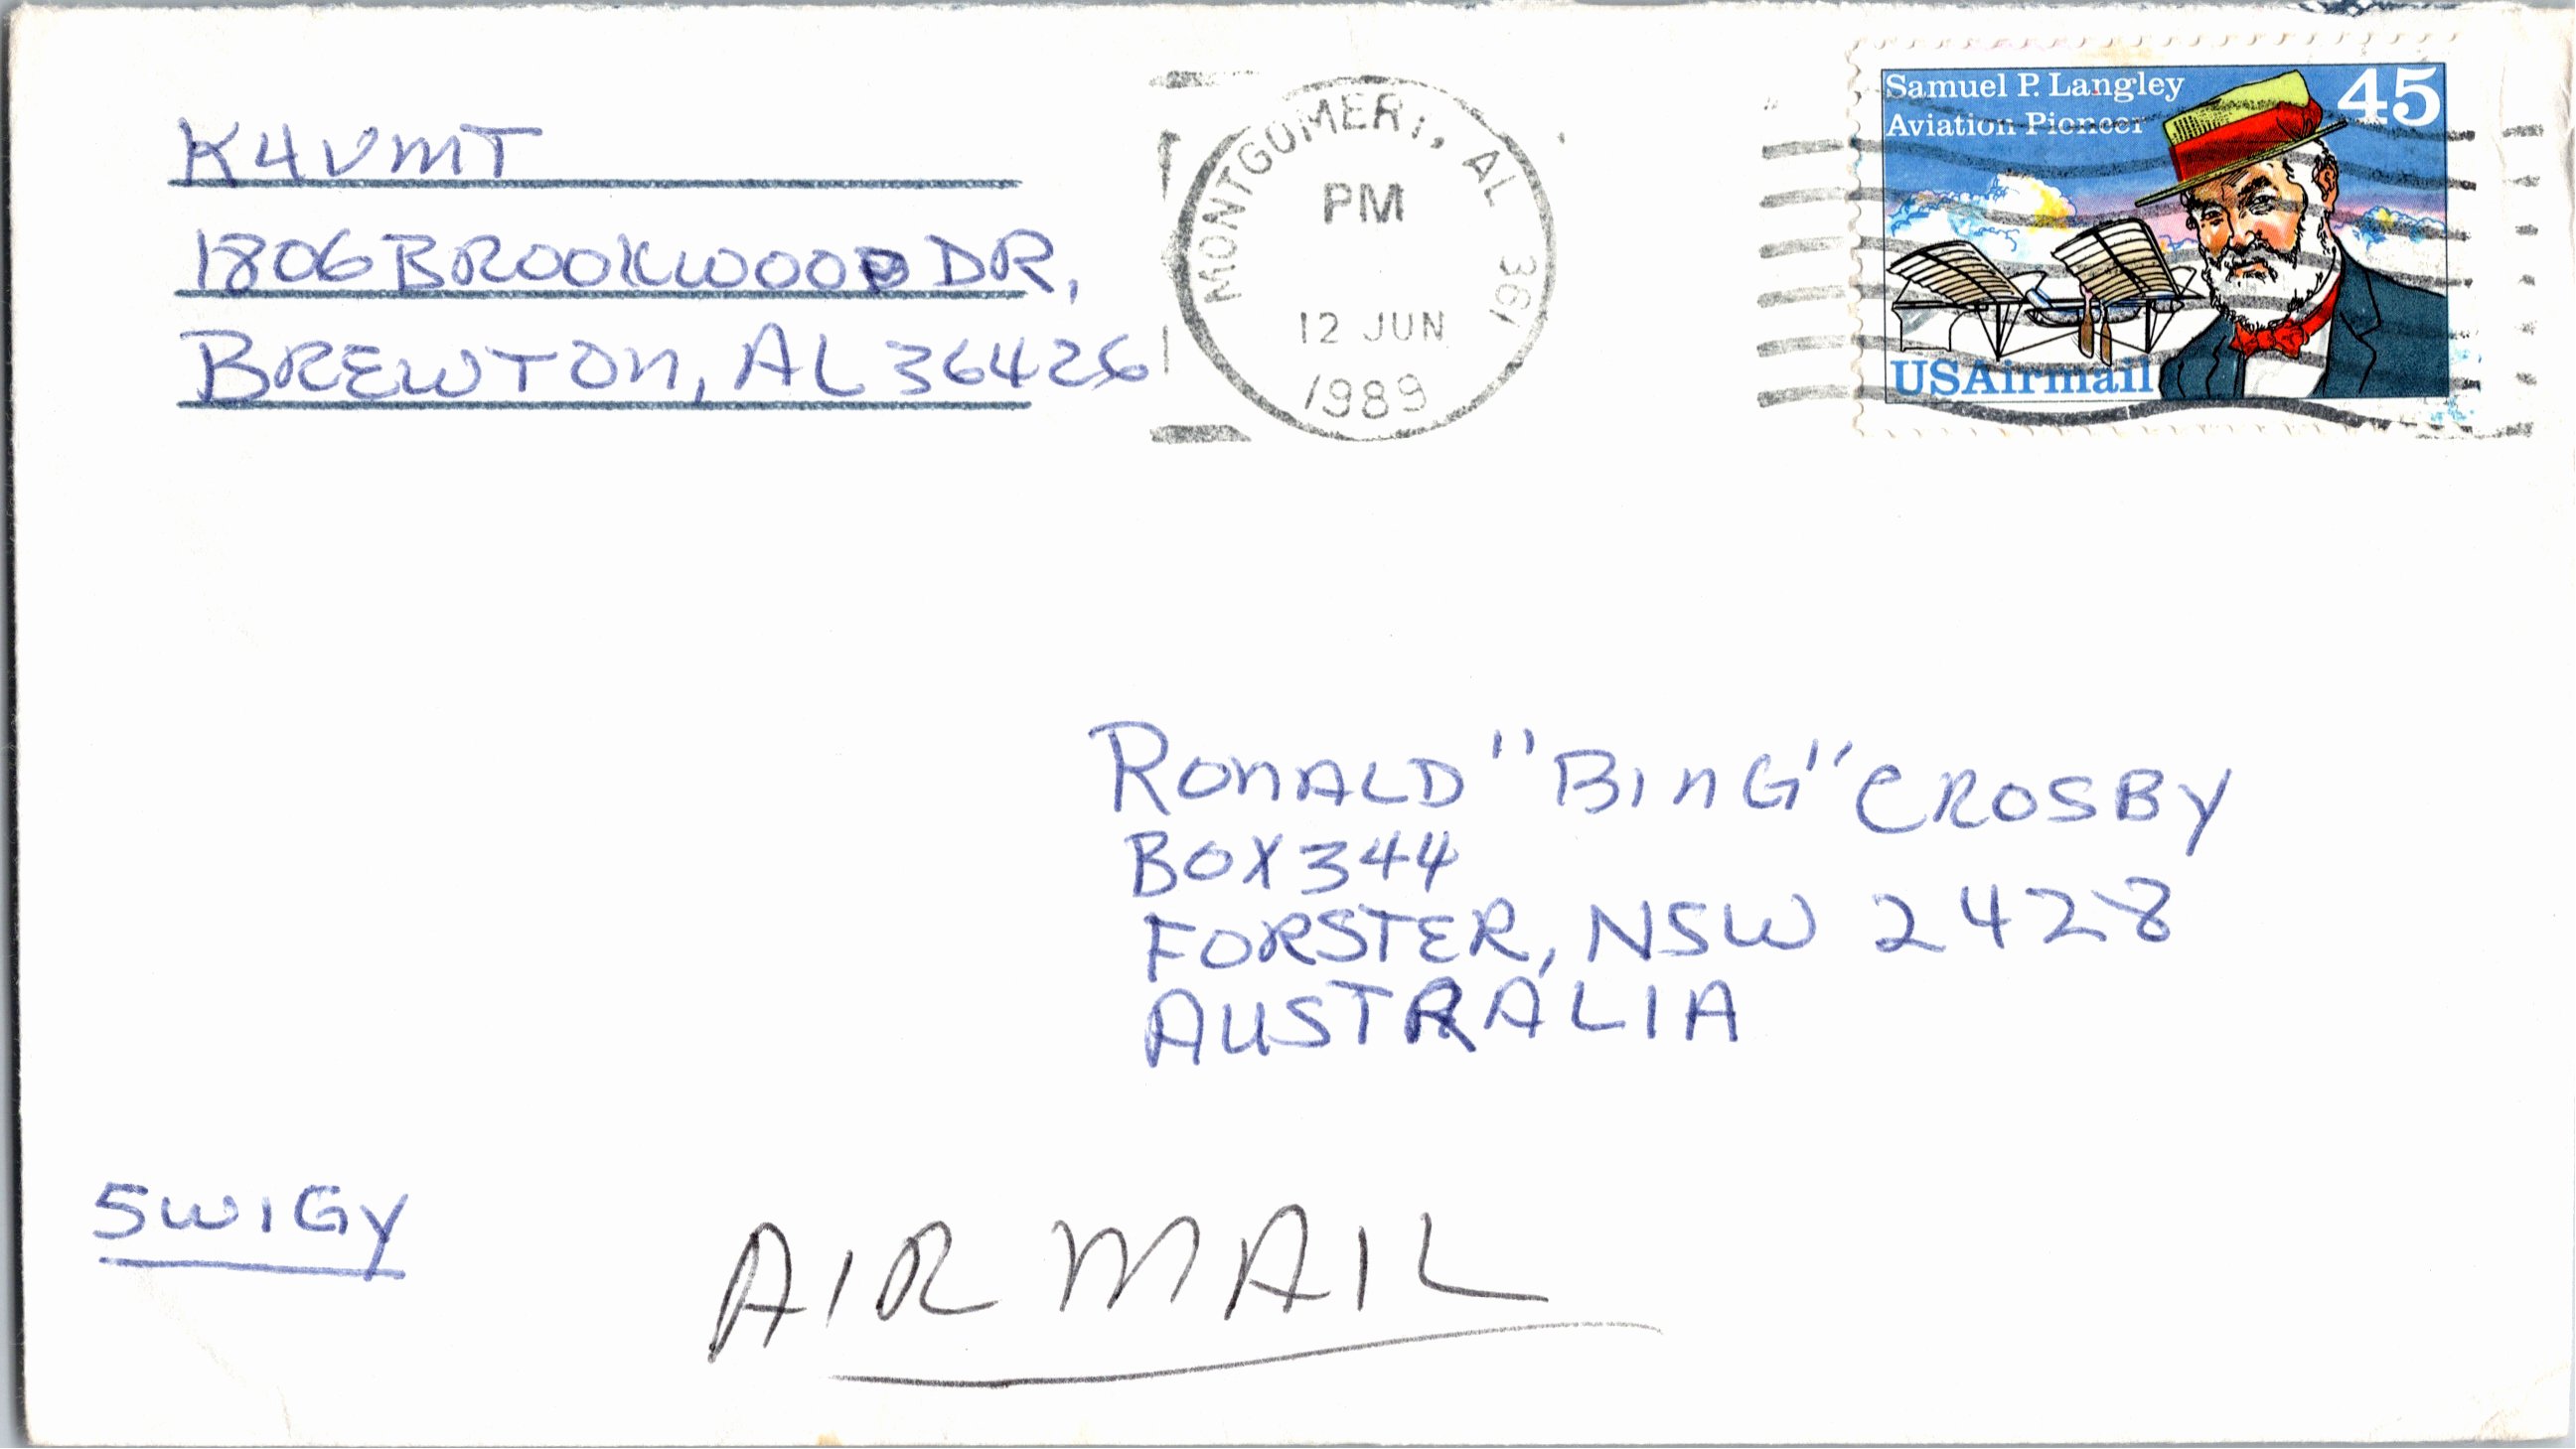 K4VMT
1806 BROOKWOOD DR,
BREWTON, AL 36426
MONTGOMERY, AL 361
PM
12 JUN
1989
Samuel P. Langley
Aviation Pioneer
45
USAirmail
RONALD "BING" CROSBY
BOX 344
FORSTER, NSW 2428
AUSTRALIA
SWIGY
AIR MAIL